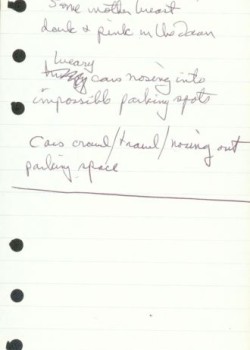 Some mother breast
dank & pink in the
weary
cars nosing into
impossible parking spots
Cars crawl/trawl/nosing out
parking space